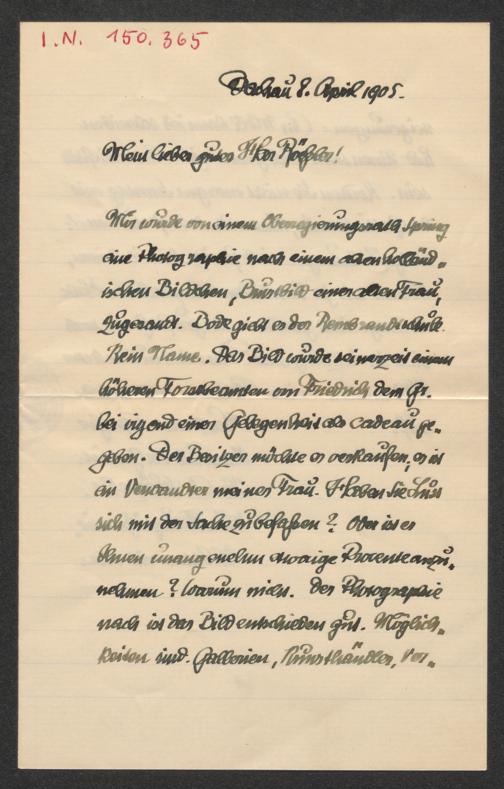 I.N. 150.365
Dachau 8. April 1905.
Mein lieber guter Herr Rößler!
Mir wurde von einem Oberregierungsrath Spring
eine Photographie nach einem alten holländ-
ischen Bildchen, Brustbild einer alten Frau,
zugesandt. Bode giebt es der Rembrandtschule.
Kein Name. Das Bild wurde seinerzeit einem
höheren Forstbeamten von Friedrich dem Gr.
bei irgend einer Gelegenheit als cadeau ge-
geben. Der Besitzer möchte es verkaufen, er ist
ein Verwandter meiner Frau. Haben Sie Lust
sich mit der Sache zu befaßen? Oder ist es
Ihnen unangenehm etwaige Procente anzu-
nehmen? Warum nicht. Der Photographie
nach ist das Bild entschieden gut. Möglich-
keiten sind. Gallerien, Kunsthändler, Ver-